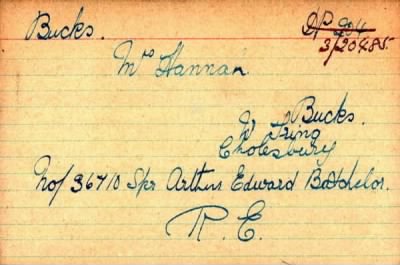 Bucks.
DP 204
3/20485.
Mrs Hannah.
Bucks.
Tring
Cholesbury
No/ 36710 Spr Arthur Edward Batchelor.
R. E.